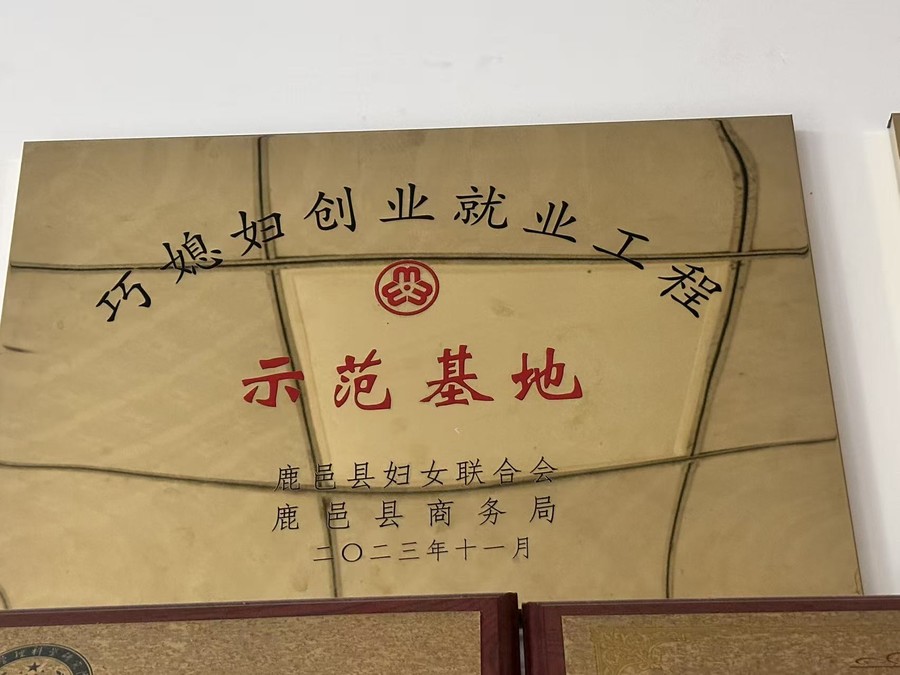 巧媳妇创业就业工程
示范基地
鹿邑县妇女联合会
鹿邑县商务局
二〇二三年十一月